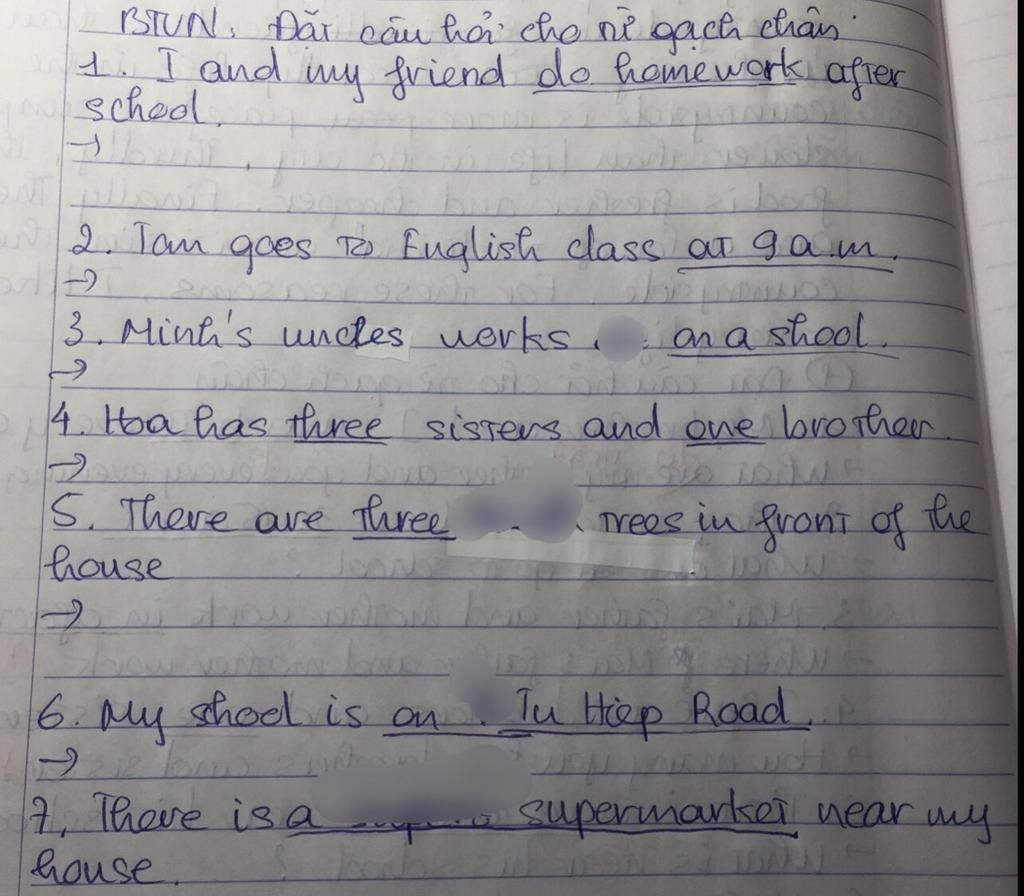 BTVN. Đặt câu hỏi cho từ gạch chân
1. I and my friend do homework after
school.
→
2. Tam goes to English class at 9 a.m.
→
3. Minh's uncles works on a shool.
→
4. Hoa has three sisters and one brother.
→
5. There are three trees in front of the
house
→
6. My shool is on Tu Hiep Road.
→
7. There is a supermarket near my
house.